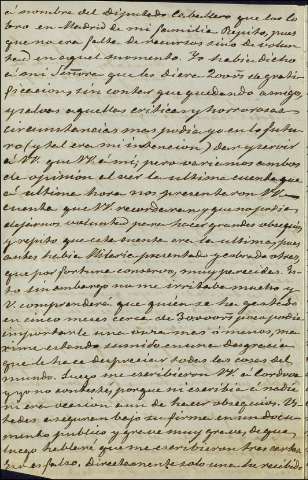 á nombre del Diputado Caballero que las co-
bro en Madrid de mi familia. Repito, pues
que no era falta de recursos sino de volun-
tad en aquel momento. Yo habia dicho
á mi Señora que les diera 200 de grati-
ficacion, sin contar que quedando amigo,
y salvas aquellas criticas y horrorosas
circunstancias mas podia yo en lo futu-
ro (y tal era mi intencion) dar y servir
á VV. que VV. á mi; pero variamos ambos
de opinion al ver la ultima cuenta que
á ultima hora nos presentaron VV.
cuenta que VV. recordaran, y que no podia
dejarnos voluntad para hacer grandes obsequios,
y repito que esta cuenta era la ultima, pues
antes habia Hilaria presentado y cobrado otras,
que por fortuna conservo, muy parecidas. Es-
to sin embargo no me irritaba mucho y
V. comprenderá que quien se ha gastado
en cinco meses cerca de 30000 poco podia
importarle una onza mas ó menos, má-
xime estando sumido en una desgracia
que le hace despreciar todas las cosas del
mundo. Luego me escribieron VV. á Cordova
y yo no contesté, porque ni escribia á nadie
ni era ocasion aun de hacer obsequios. Us-
tedes aseguran bajo su firma en un docu-
mento publico y grave muy grave, de que
luego hablaré que me escribieron tres cartas.
Eso es falso. Directamente solo una he recibido